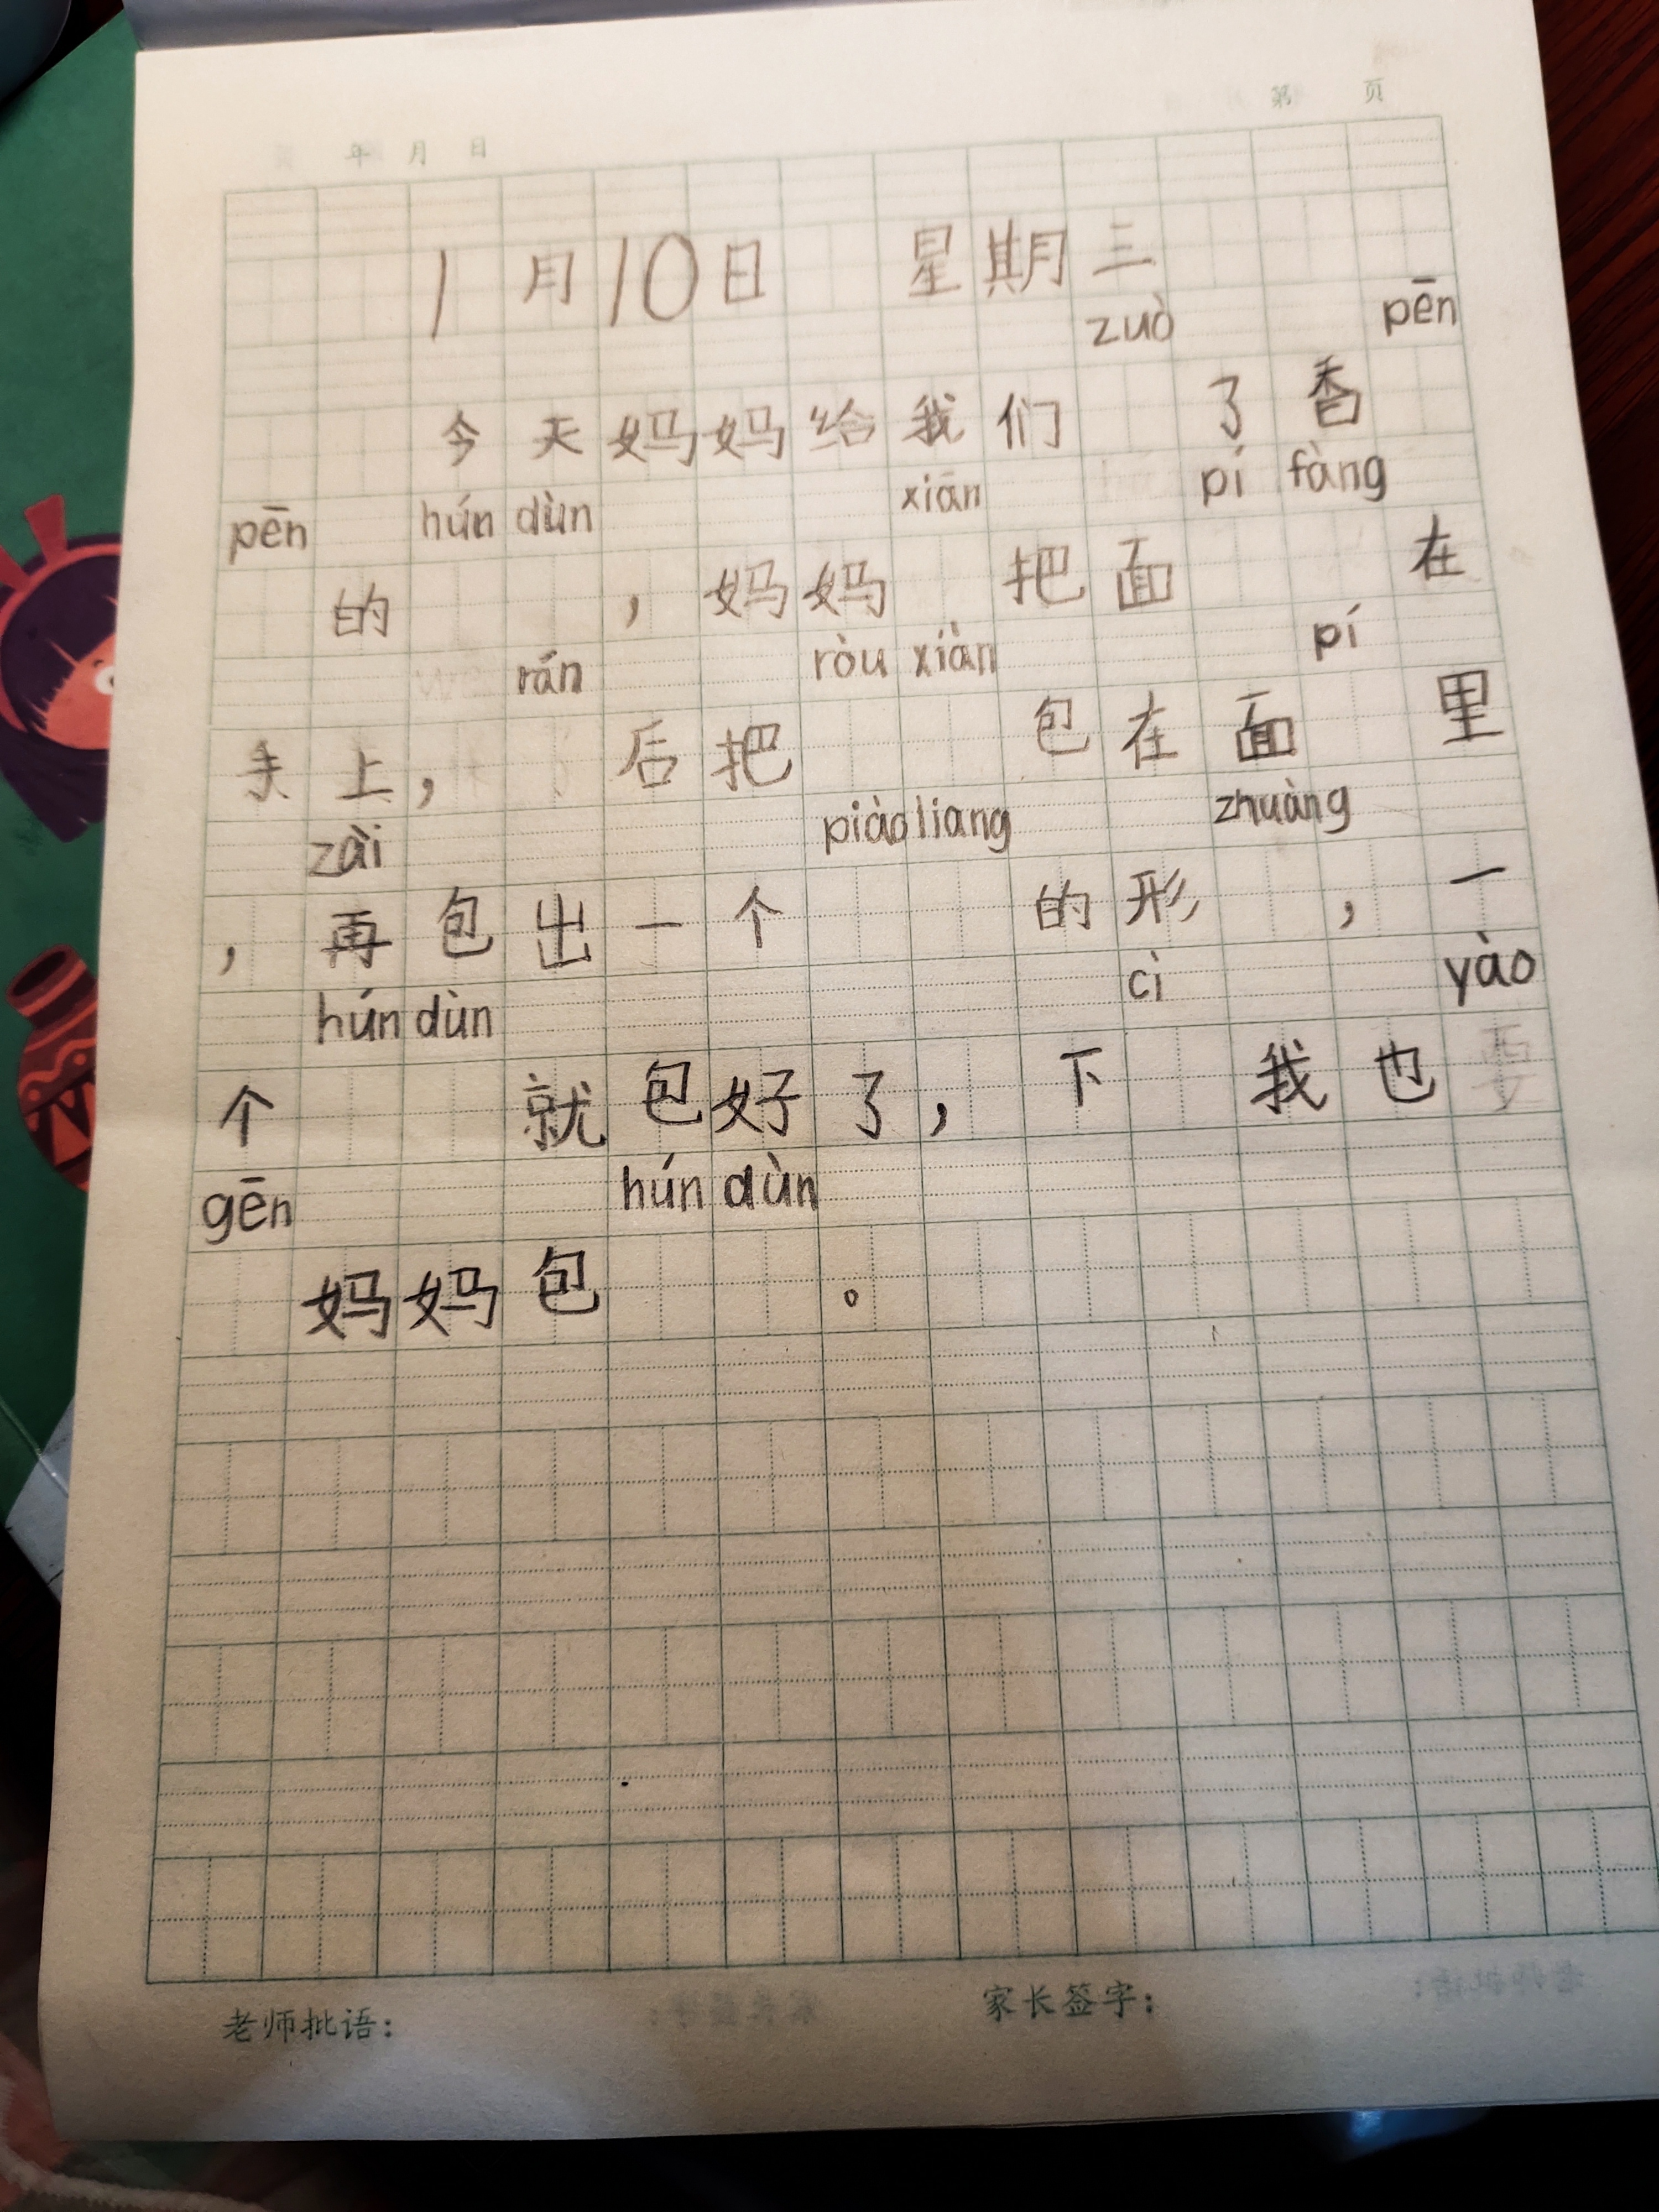 年 月 日
第 页
1月10日 星期三
zuò pēn
今天妈妈给我们 了香
pēn hún dùn xiān pí fàng
的 ，妈妈 把面 在
rán ròu xiàn pí
手上， 后把 包在面 里
zài piào liang zhuàng
，再包出一个 的形 ，一
hún dùn cì yào
个 就包好了，下 我也要
gēn hún dùn
妈妈包 。
老师批语：
家长签字：